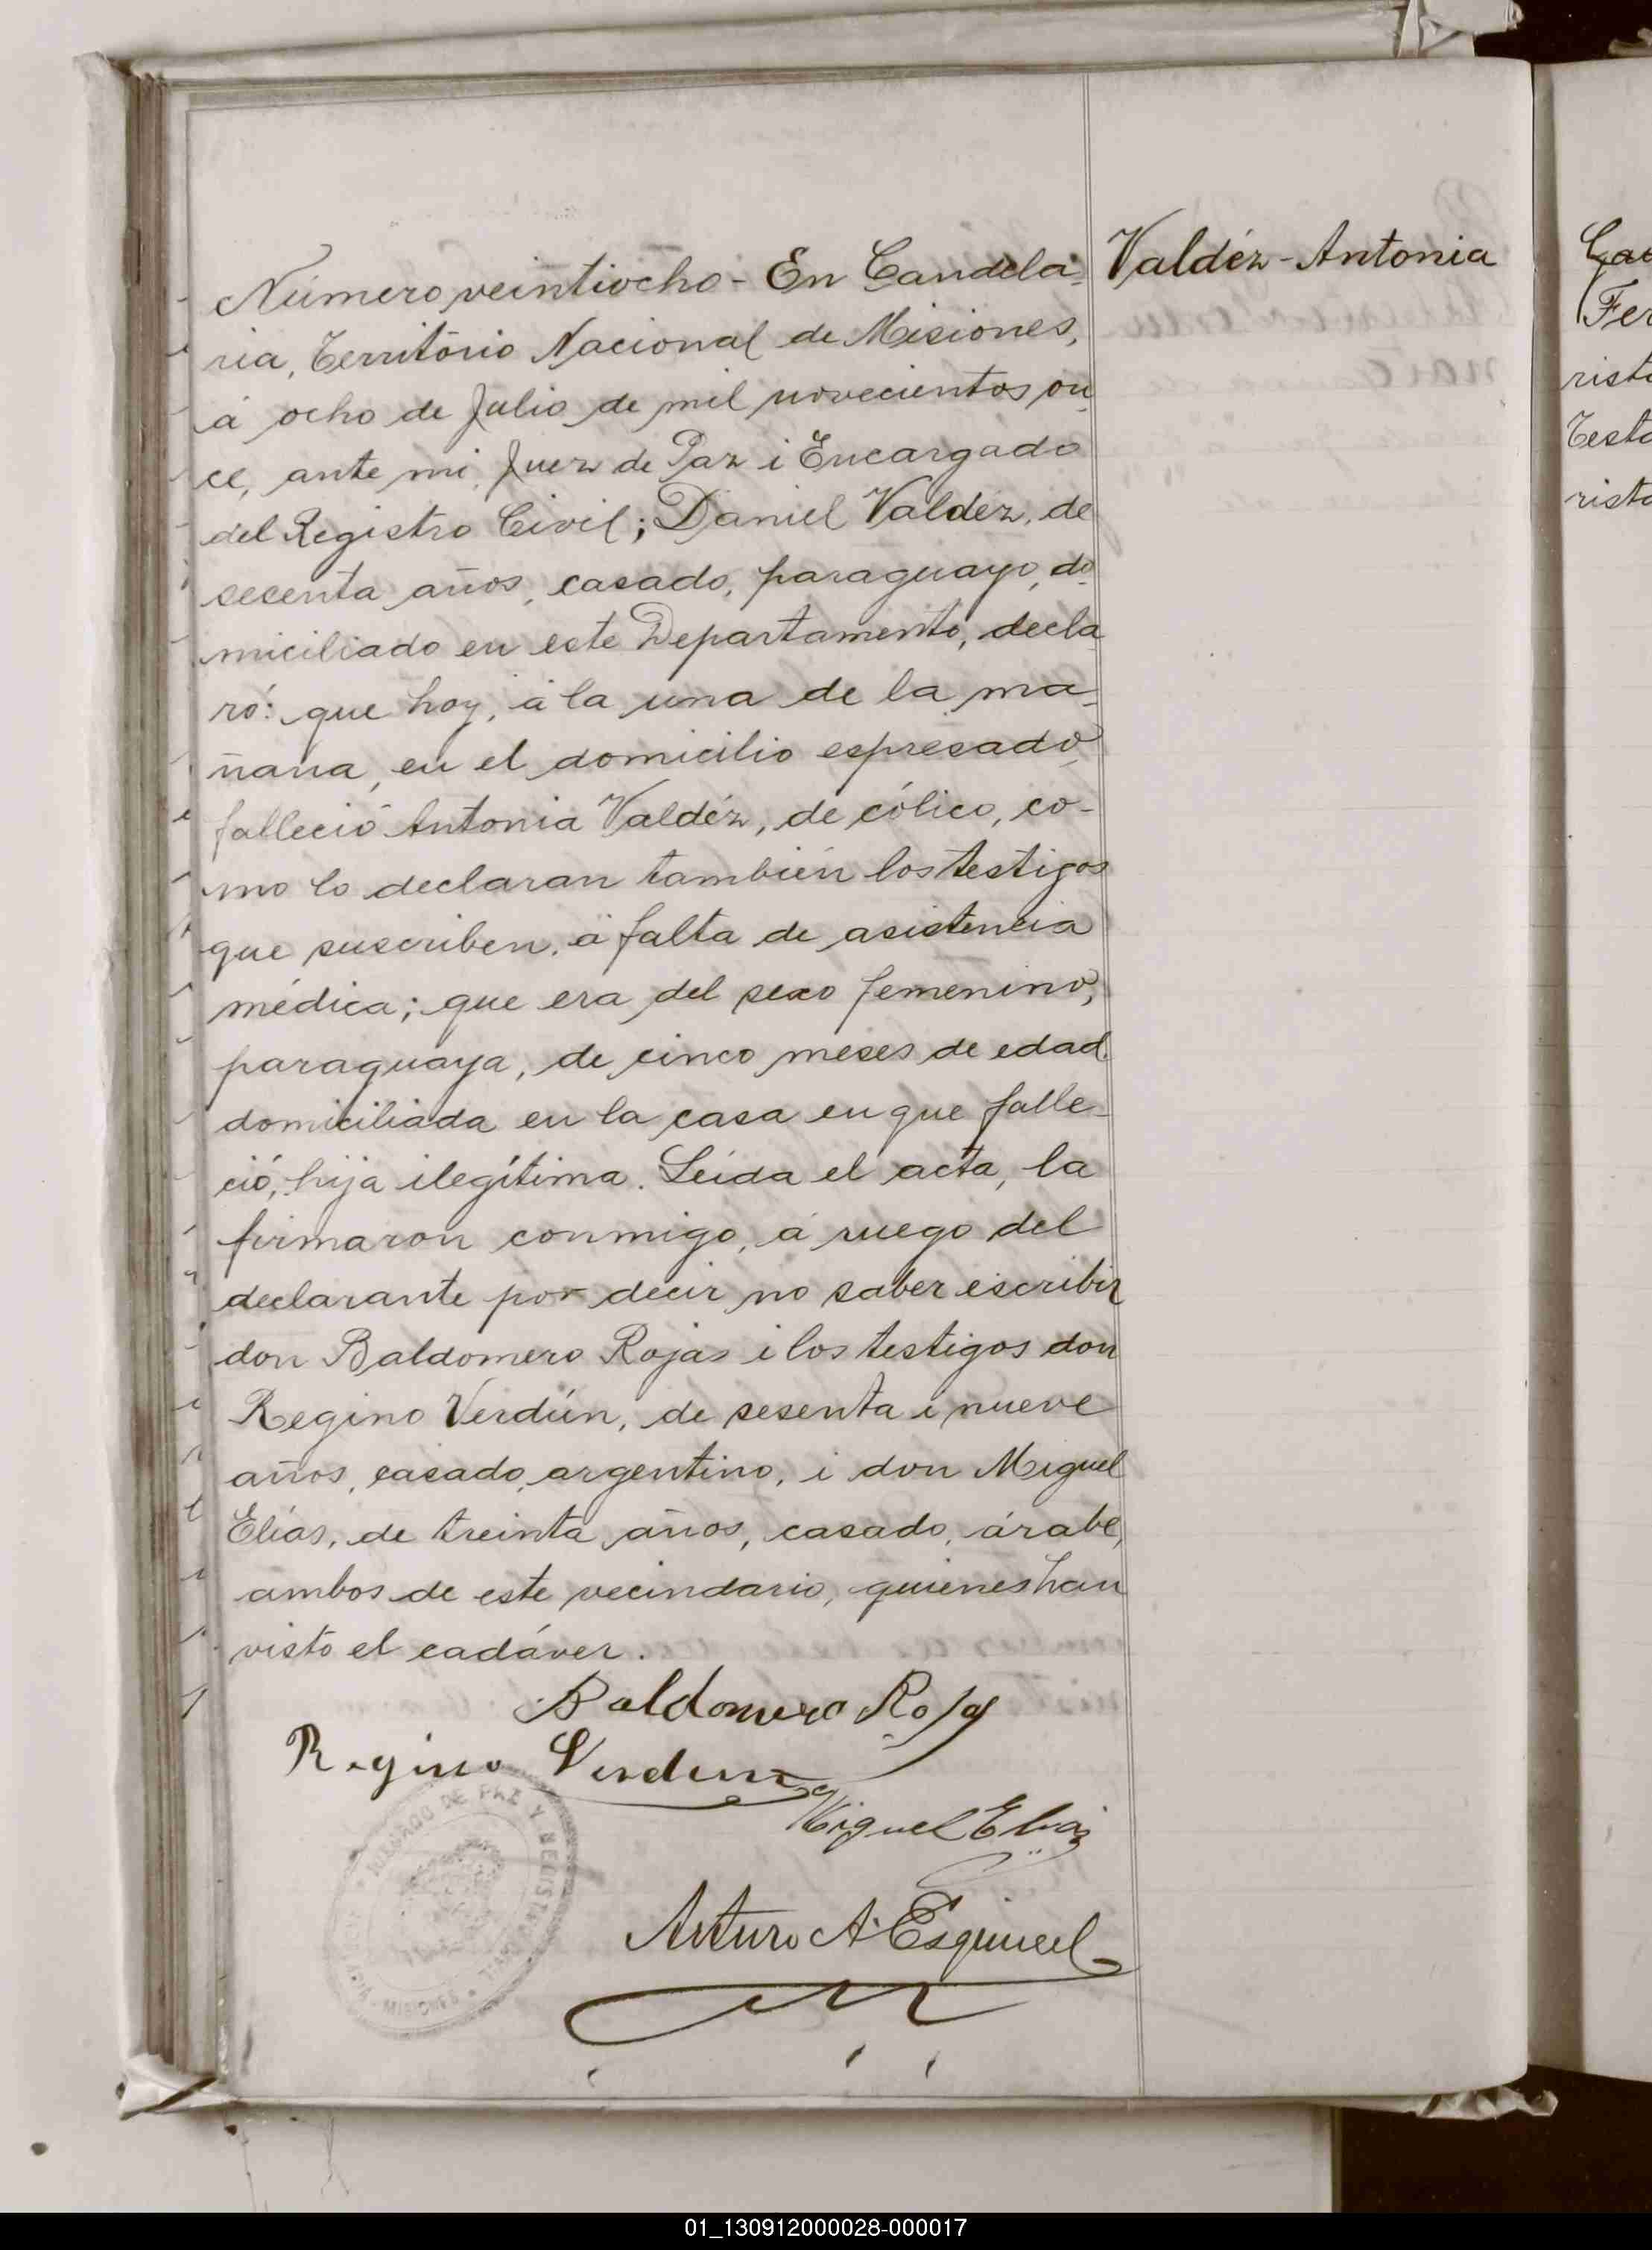 Número veintiocho - En Candela-
ria, Territorio Nacional de Misiones,
á ocho de Julio de mil novecientos on-
ce, ante mi, Juez de Paz i Encargado
del Registro Civil; Daniel Valdéz, de
sesenta años, casado, paraguayo, do-
miciliado en este Departamento, decla-
ró: que hoy, á la una de la ma-
ñana, en el domicilio espresado,
falleció Antonia Valdéz, de cólico, co-
mo lo declaran también los testigos
que suscriben, á falta de asistencia
médica; que era del sexo femenino,
paraguaya, de cinco meses de edad,
domiciliada en la casa en que falle-
ció, hija ilegítima. Leída el acta, la
firmaron conmigo, á ruego del
declarante por decir no saber escribir
don Baldomero Rojas i los testigos don
Regino Verdún, de sesenta i nueve
años, casado, argentino, i don Miguel
Elías, de treinta años, casado, árabe,
ambos de este vecindario, quienes han
visto el cadáver.
Baldomero Rojas
Regino Verdun
Miguel Elias
Arturo A. Esquivel
JUZGADO DE PAZ Y REGISTRO CIVIL
MISIONES
Valdéz - Antonia
Fer
rist
Test
rist
01_130912000028-000017